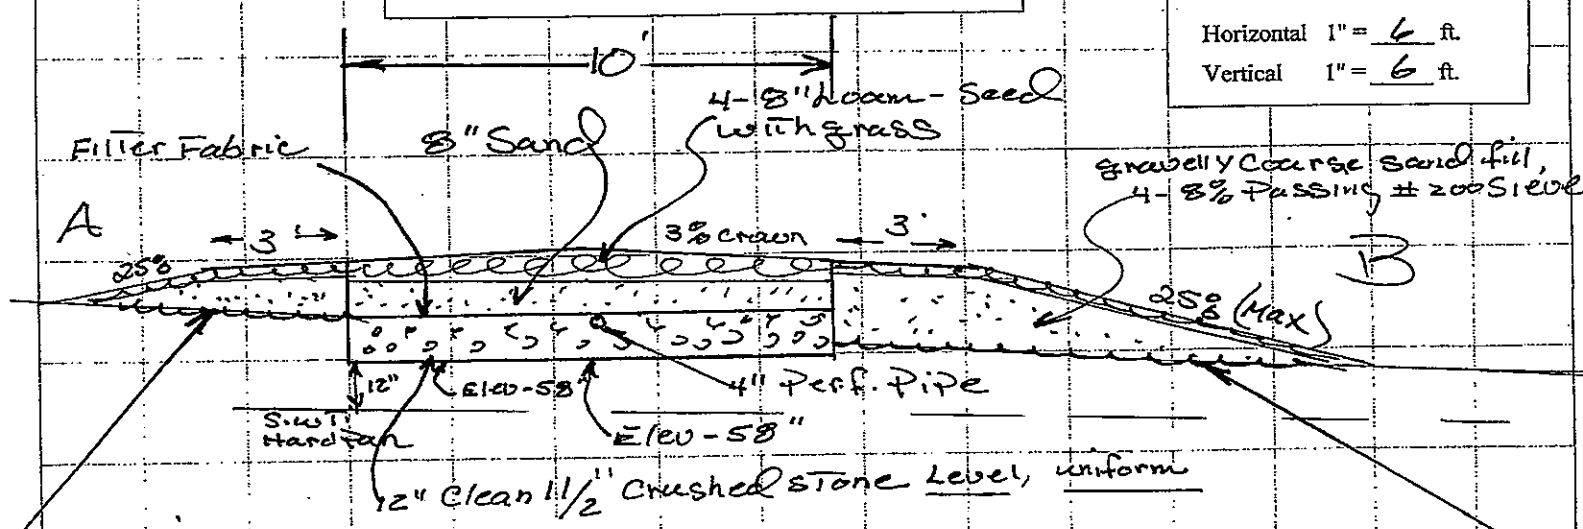 Horizontal 1" = 6 ft.
Vertical 1" = 6 ft.
10'
4-8" Loam - Seed
with grass
Filter Fabric
8" Sand
gravelly Coarse sand fill,
4-8% Passing # 200 Sieve
A
3'
3% Crown
3'
B
25%
25% (Max)
12"
Elev-58"
4" Perf. Pipe
S.W.T.
Hardpan
Elev-58"
12" Clean 1 1/2" Crushed stone Level, uniform